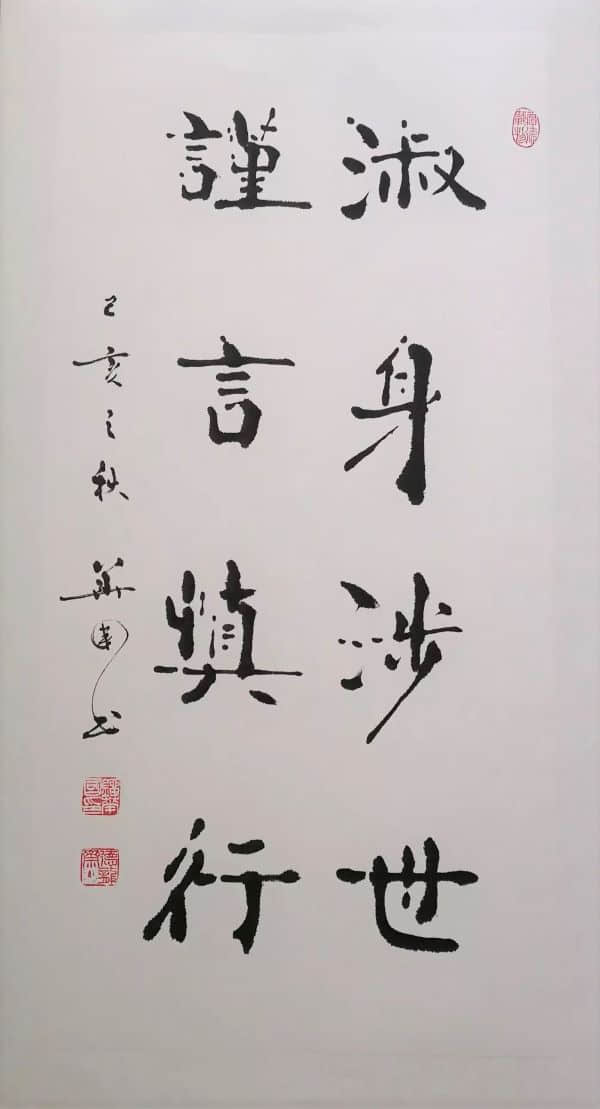 淑身涉世
謹言慎行
己亥之秋 華國书